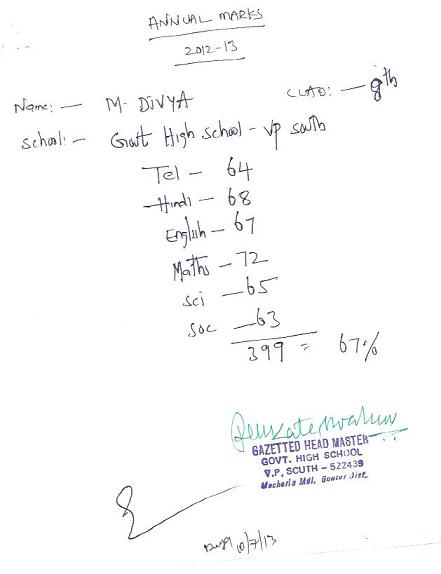 ANNUAL MARKS
2012-13
Name: — M. DiVYA CLASS: — 8th
School: — Govt High School - VP South
Tel — 64
Hindi — 68
English — 67
Maths — 72
Sci — 65
Soc — 63
399 = 67%
GAZETTED HEAD MASTER
GOVT. HIGH SCHOOL
V.P. SOUTH - 522439
Macherla Mdl. Guntur Dist.
10/7/13